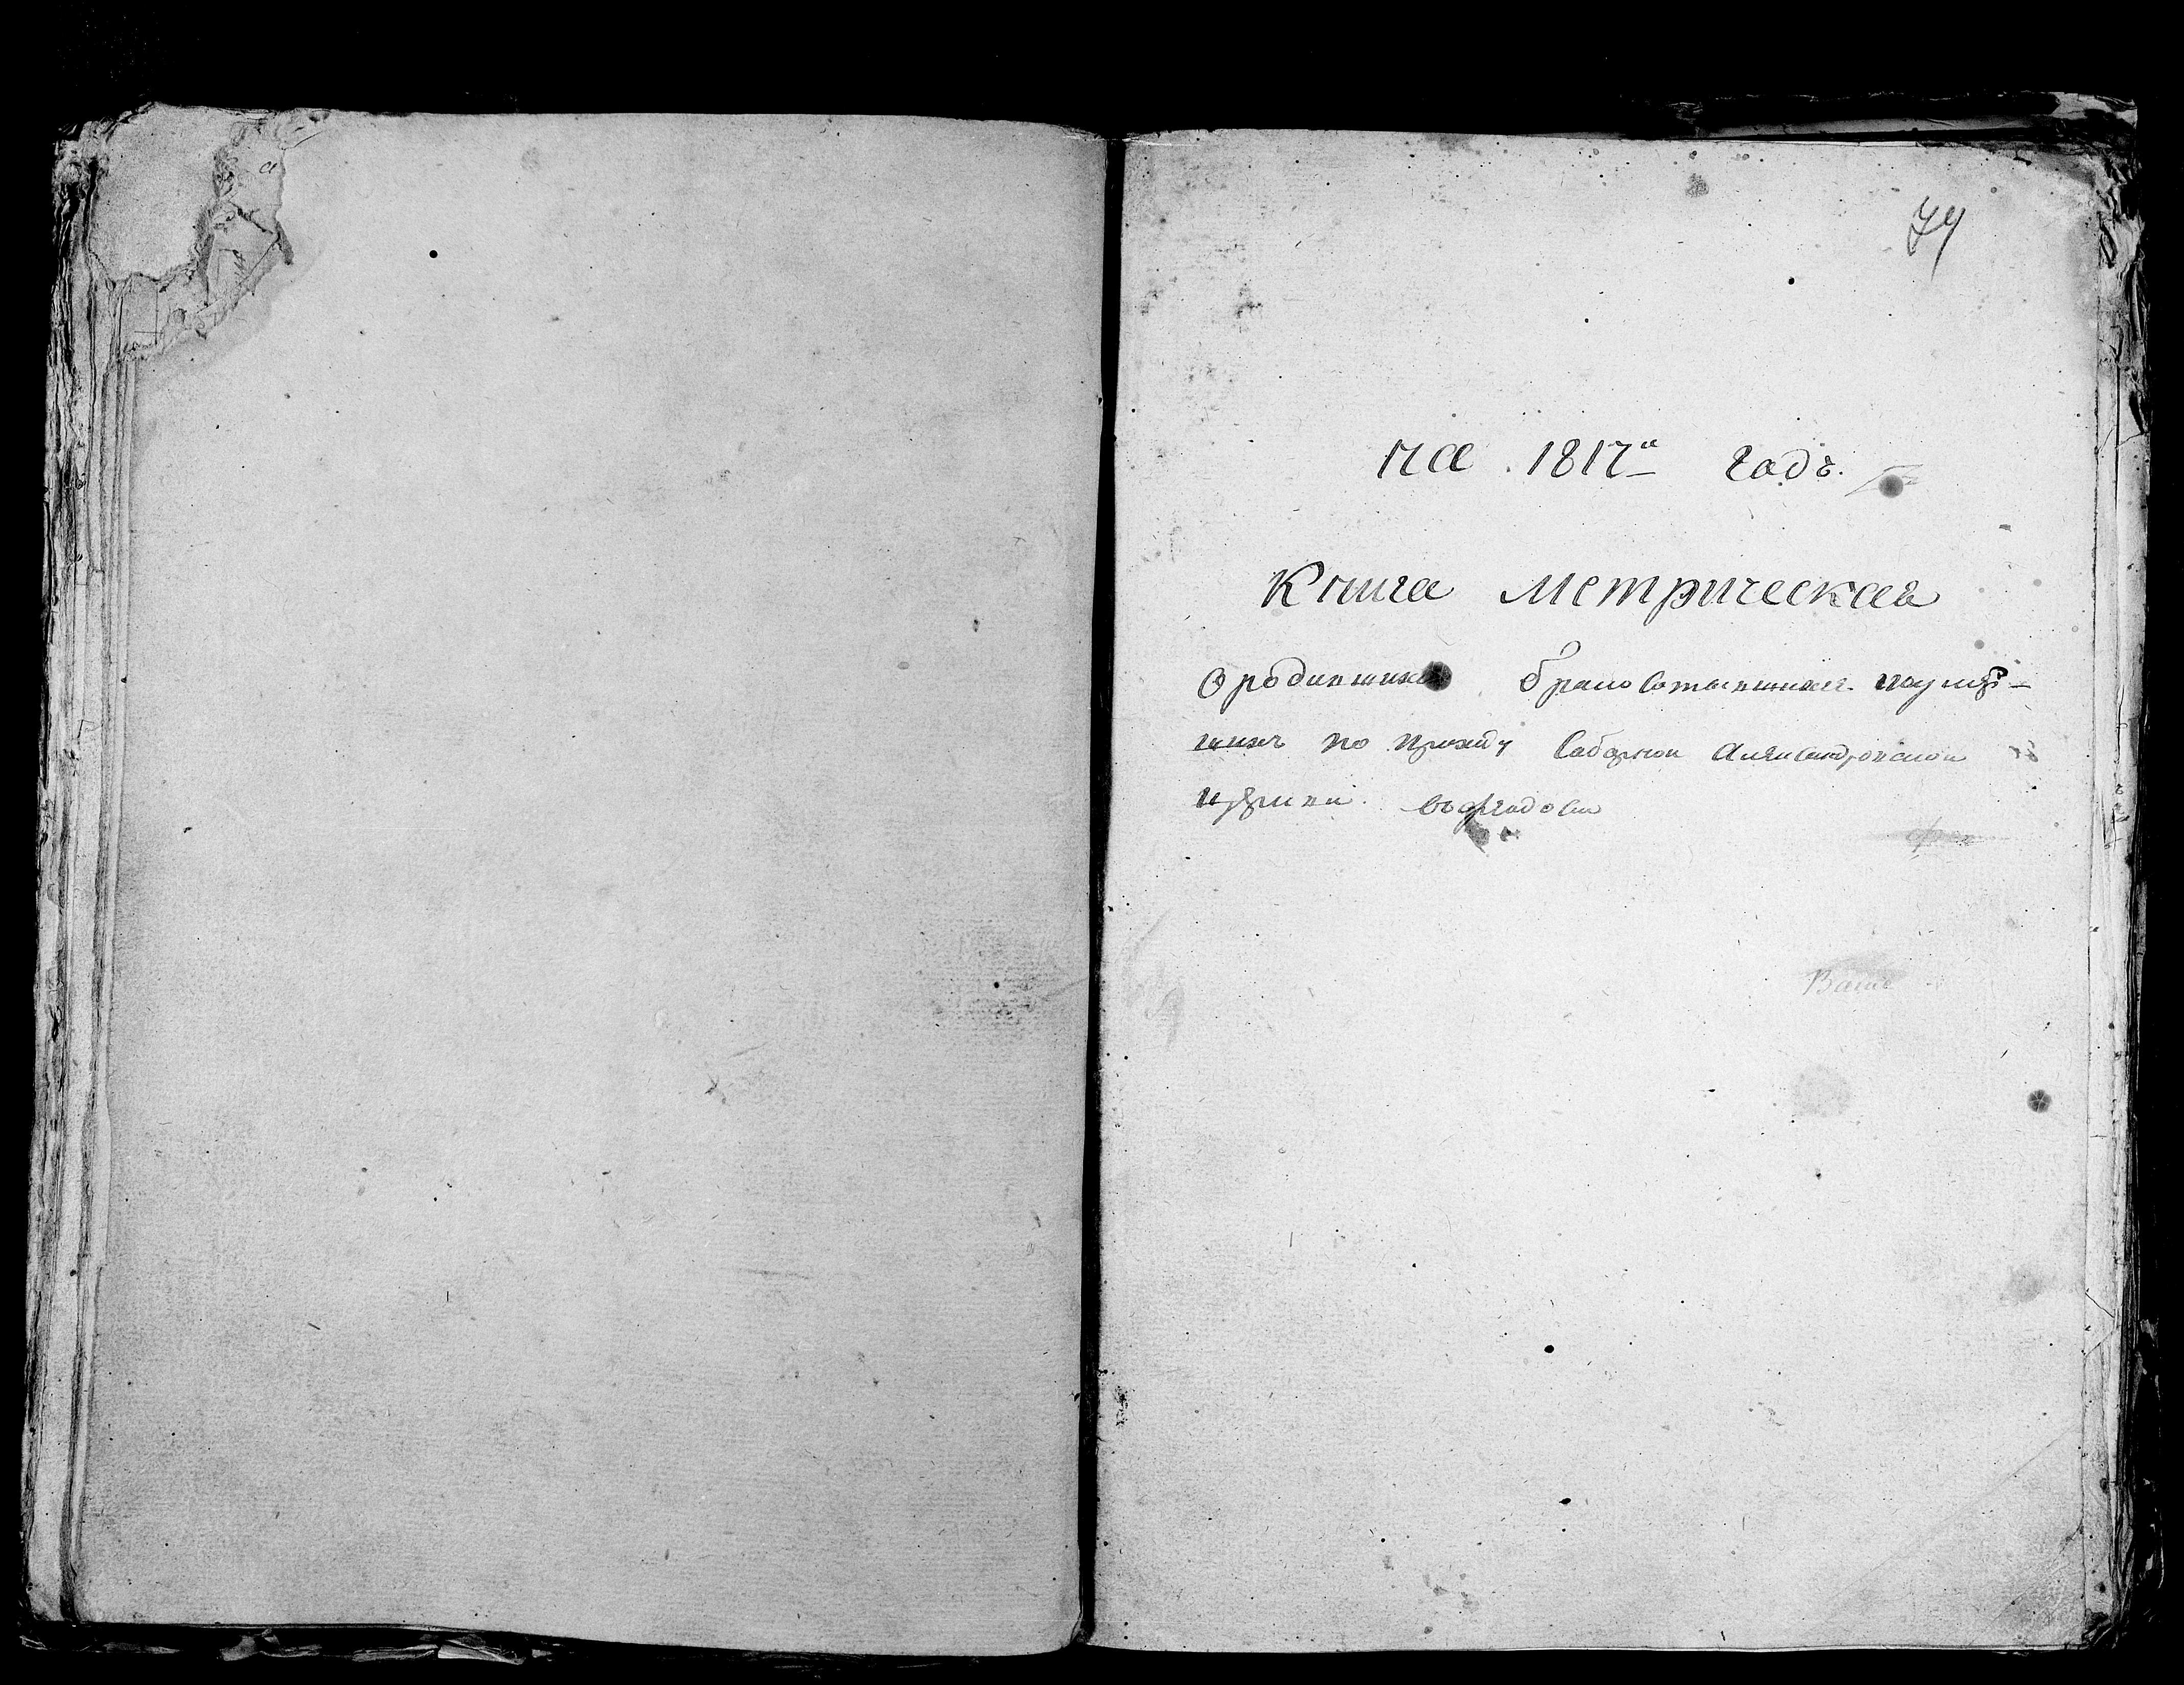 74
на 1817й годъ.
Книга метрическая
О родившихся браносотывшихся и оумер-
шихъ по приходу Саборнои Александровскои
церкви
Ваше